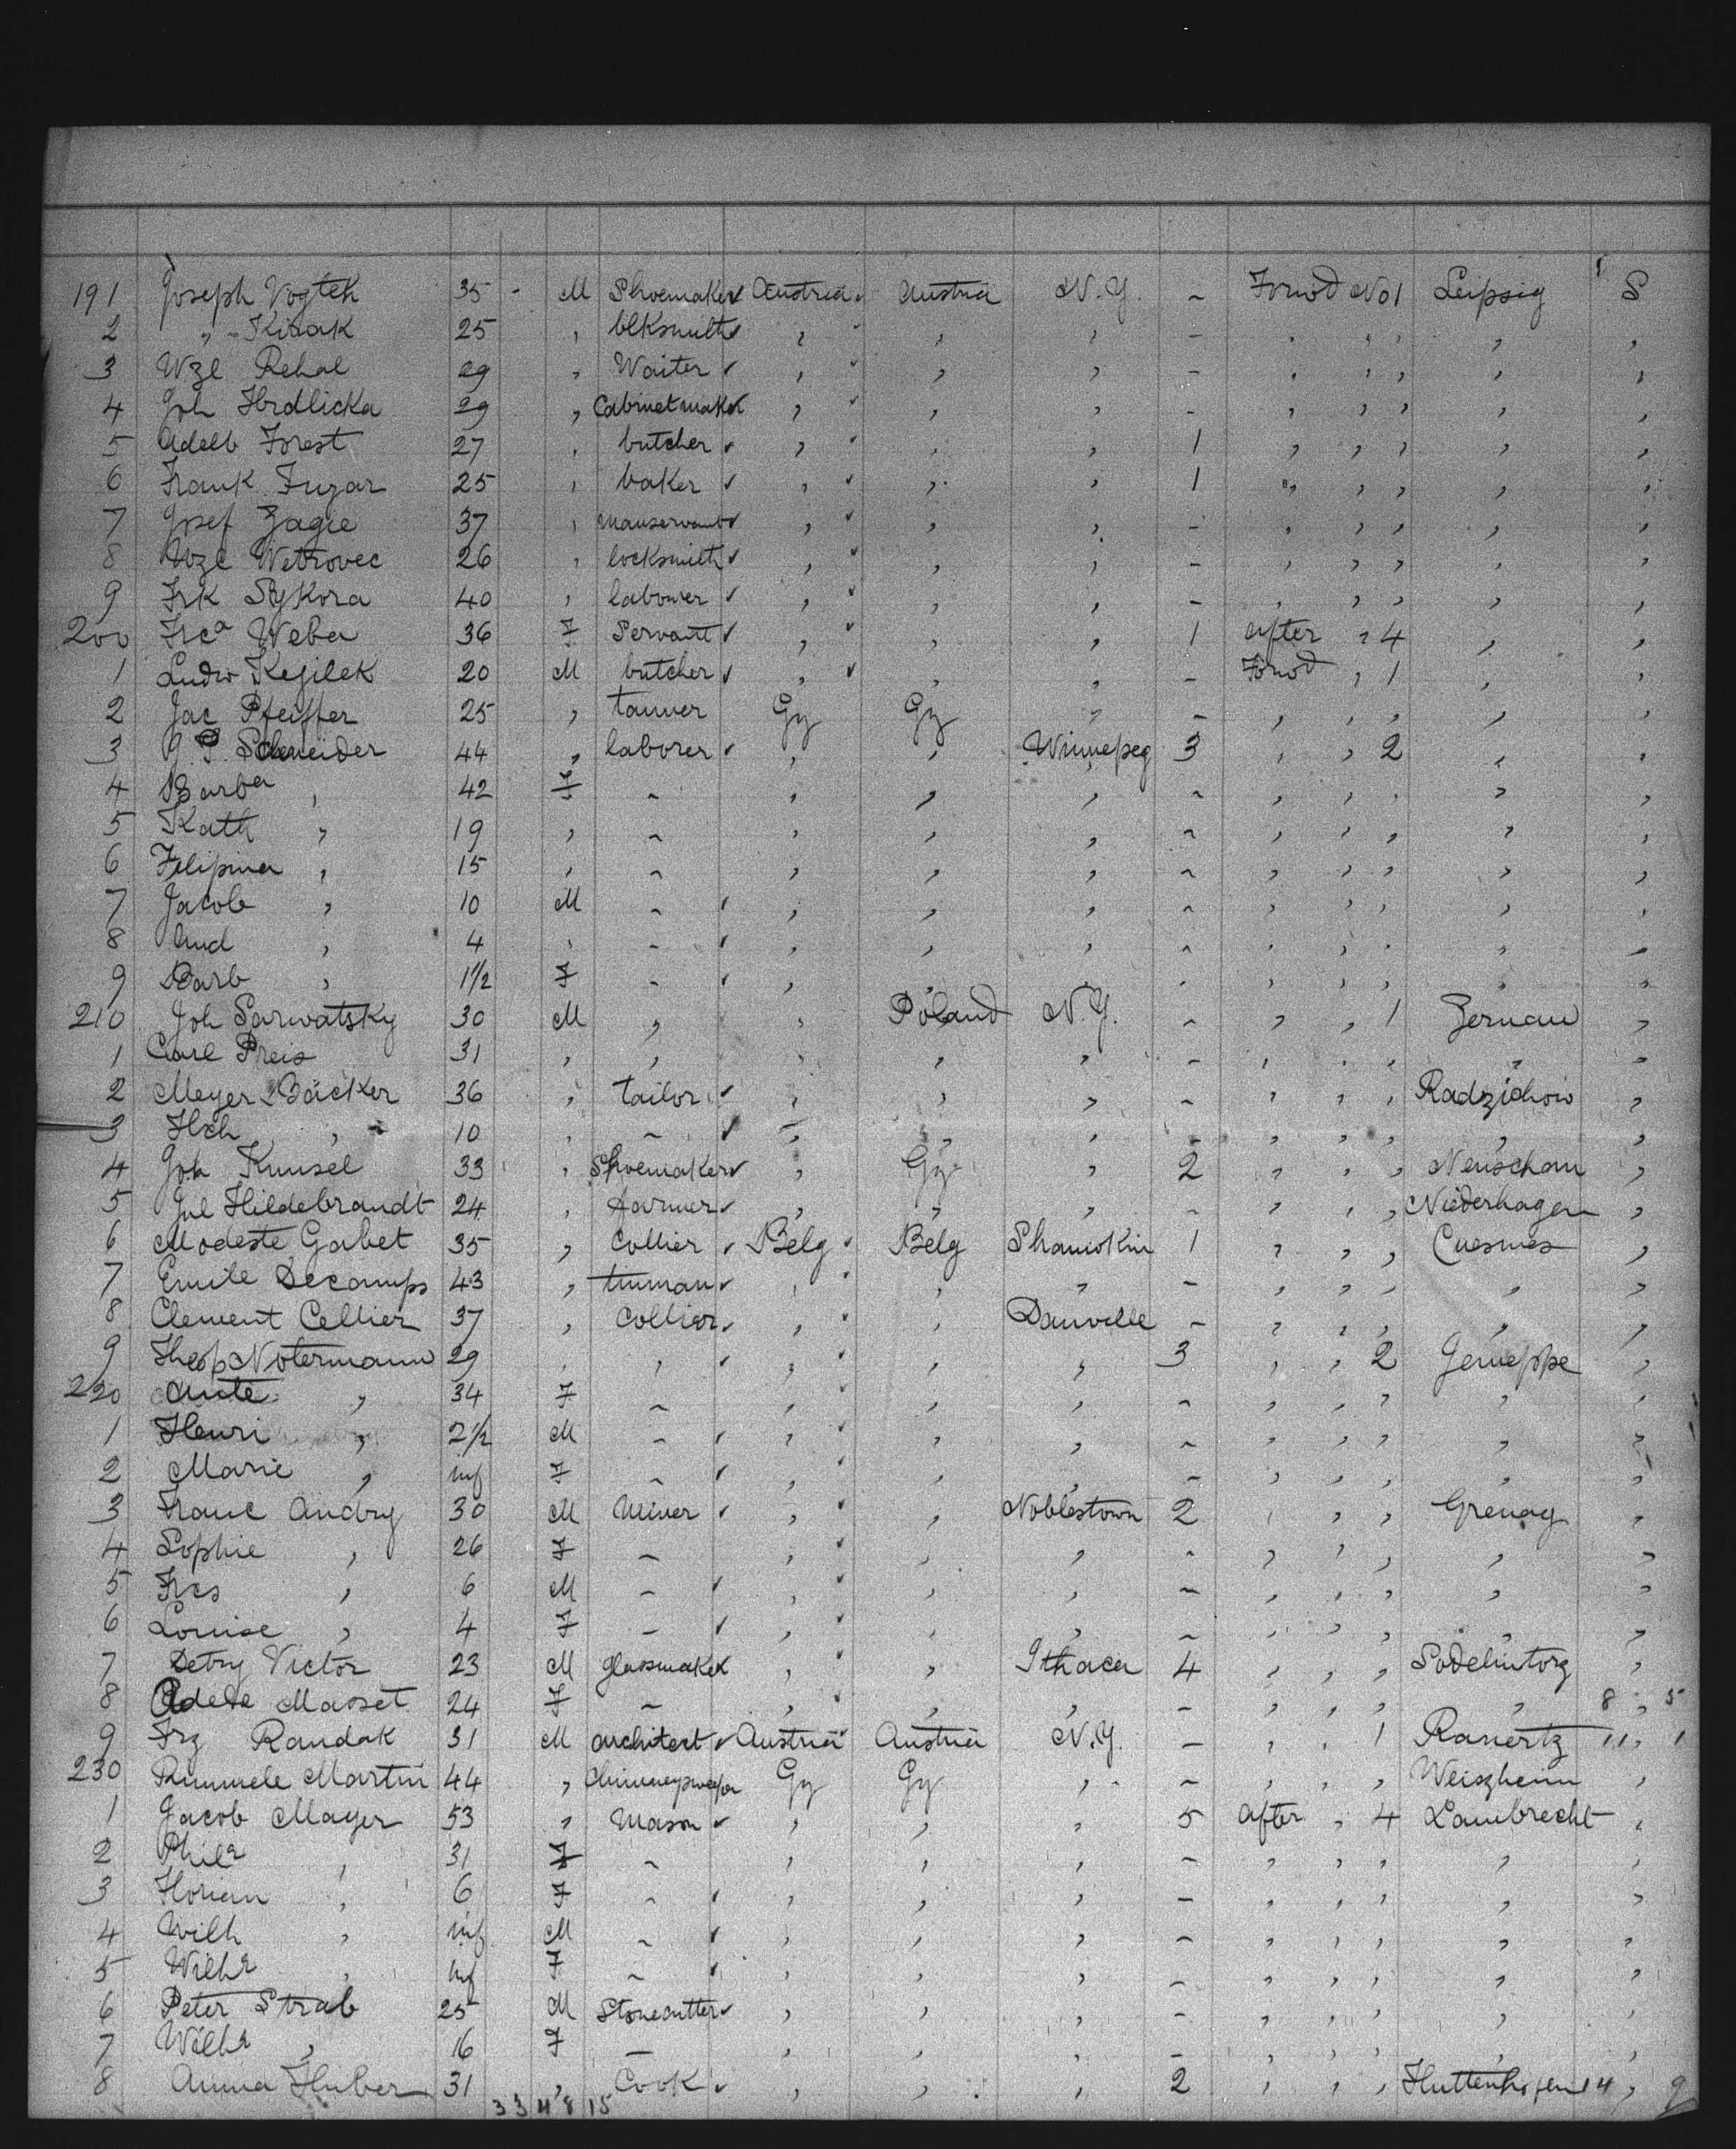 191 Joseph Vogtek 35 - M Shoemaker ✓ Austria ✓ Austria N.Y. ~ Forwd No 1 Leipsig S
2 " Kinak 25 , blksmith ✓ , ✓ , , - , , , , ,
3 Wzl Rehal 29 , Waiter ✓ , ✓ , , - , , , , ,
4 Joh Hrdlicka 29 , Cabinetmaker , ✓ , , - , , , , ,
5 Adelb Forest 27 , butcher ✓ , ✓ , , 1 , , , , ,
6 Frank 25 , baker ✓ , ✓ , , 1 , , , , ,
7 Josef Zagie 37 , manservant ✓ , ✓ , , - , , , , ,
8 Wzl Wetrovec 26 , locksmith ✓ , ✓ , , - , , , , ,
9 Frk Sykora 40 , labourer ✓ , ✓ , , - , , , , ,
200 Frca Weber 36 F Servant ✓ , ✓ , , 1 after , 4 , ,
1 Ludw Kejilek 20 M butcher ✓ , ✓ , , - Forwd , 1 , ,
2 Jac Pfeiffer 25 , tanner Gy Gy , - , , , , ,
3 Schneider 44 , laborer ✓ , , Winnepeg 3 , , 2 , ,
4 Barba , 42 F ~ , , , ~ , , , , ,
5 Kath , 19 , ~ , , , ~ , , , , ,
6 Filipina , 15 , ~ , , , ~ , , , , ,
7 Jacob , 10 M ~ ✓ , , , ~ , , , , ,
8 And , 4 , - ✓ , , , ~ , , , , ,
9 Barb , 1½ F - ✓ , , , - , , , , ,
210 Joh Sarwatsky 30 M , , Poland N.Y. ~ , , 1 Zernau ,
1 Carl Preis 31 , , , , , - , , , , ,
2 Meyer Bäcker 36 , tailor ✓ , , , ~ , , , Radzichow ,
3 Hch , 10 , ~ ✓ , , , - , , , , ,
4 Joh Kunsel 33 , Shoemaker ✓ , Gy , 2 , , , Neuschan ,
5 Jul Hildebrandt 24 , farmer ✓ , , , ~ , , , Niederhagen ,
6 Modeste Gabet 35 , Collier ✓ Belg ✓ Belg Shamokin 1 , , , Cuesmes ,
7 Emile Decamps 43 , tinman ✓ , ✓ , , - , , , , ,
8 Clement Cellier 37 , Collier ✓ , ✓ , Danville - , , , , ,
9 Theop Notermann 29 , , ✓ , ✓ , , 3 , , 2 Gemeppe ,
220 , 34 F ~ , ✓ , , ~ , , , , ,
1 Henri , 2½ M ~ ✓ , ✓ , , ~ , , , , ,
2 Marie , inf F ~ ✓ , ✓ , , - , , , , ,
3 Franc Andry 30 M Miner ✓ , ✓ , Noblestown 2 , , , Grenag ,
4 Sophie , 26 F ~ , ✓ , , ~ , , , , ,
5 Frcs , 6 M - ✓ , ✓ , , ~ , , , , ,
6 Louise , 4 F - ✓ , ✓ , , ~ , , , , ,
7 Detry Victor 23 M glassmaker , ✓ , Ithaca 4 , , , Sodelintorg ,
8 Adele Masset 24 F ~ , ✓ , , - , , , , 8 , 5
9 Frz Randak 31 M architect ✓ Austria ✓ Austria N.Y. - , , 1 Ranertz 11 , 1
230 Rummele Martin 44 , Chimneysweeper Gy Gy , ~ , , , Weiszheim ,
1 Jacob Mayer 53 , Mason ✓ , , , 5 after , 4 Lambrecht ,
2 Phila , 31 F ~ , , , ~ , , , , ,
3 Florian , 6 F ~ ✓ , , , - , , , , ,
4 Wilh , inf M ~ ✓ , , , ~ , , , , ,
5 Wilha , inf F ~ ✓ , , , - , , , , ,
6 Peter Strab 25 M Stonecutter ✓ , , , - , , , , ,
7 Wilha , 16 F - , , , - , , , , ,
8 Anna Huber 31 , Cook ✓ , , , 2 , , , Huttenhofen 14 , 9
33 4 8 15